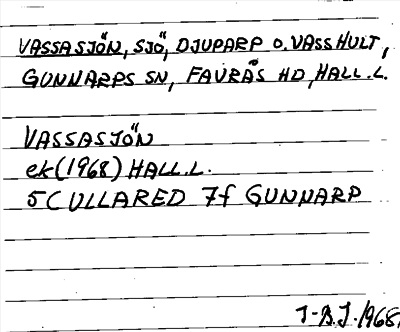 VASSASJÖN, SJÖ, DJUPARP O. VASSHULT,
GUNNARPS SN, FAURÅS HD, HALL.L.
VASSASJÖN
ek(1968) HALL.L.
5C ULLARED 7f GUNNARP
T-B.J. 1968